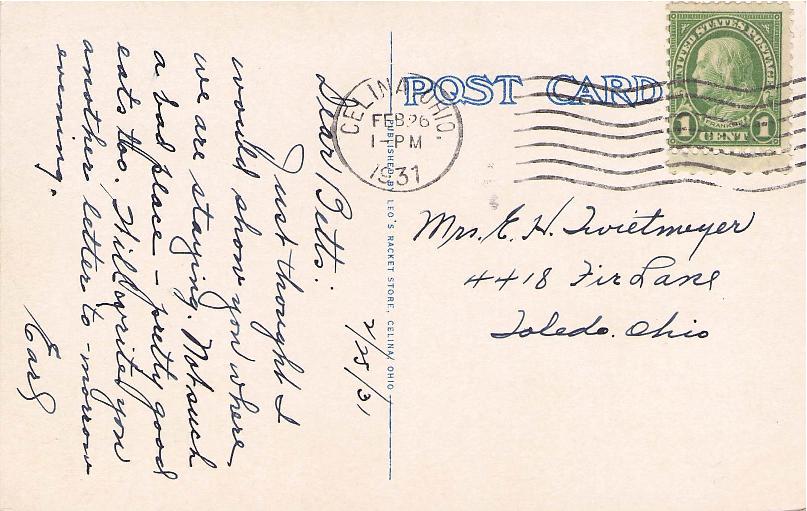 2/25/31
Dear Betts:
Just thought I
would show you where
we are staying. Not such
a bad place - pretty good
eats too, Will write you
another letter to-morrow
evening.
Earl
PUBLISHED BY LEO'S RACKET STORE, CELINA, OHIO
POST CARD
CELINA, OHIO.
FEB 26
1-PM
1931
UNITED STATES POSTAGE
FRANKLIN
1 CENT 1
Mrs. E. H. Twietmeyer
4418 Fir Lane
Toledo. Ohio